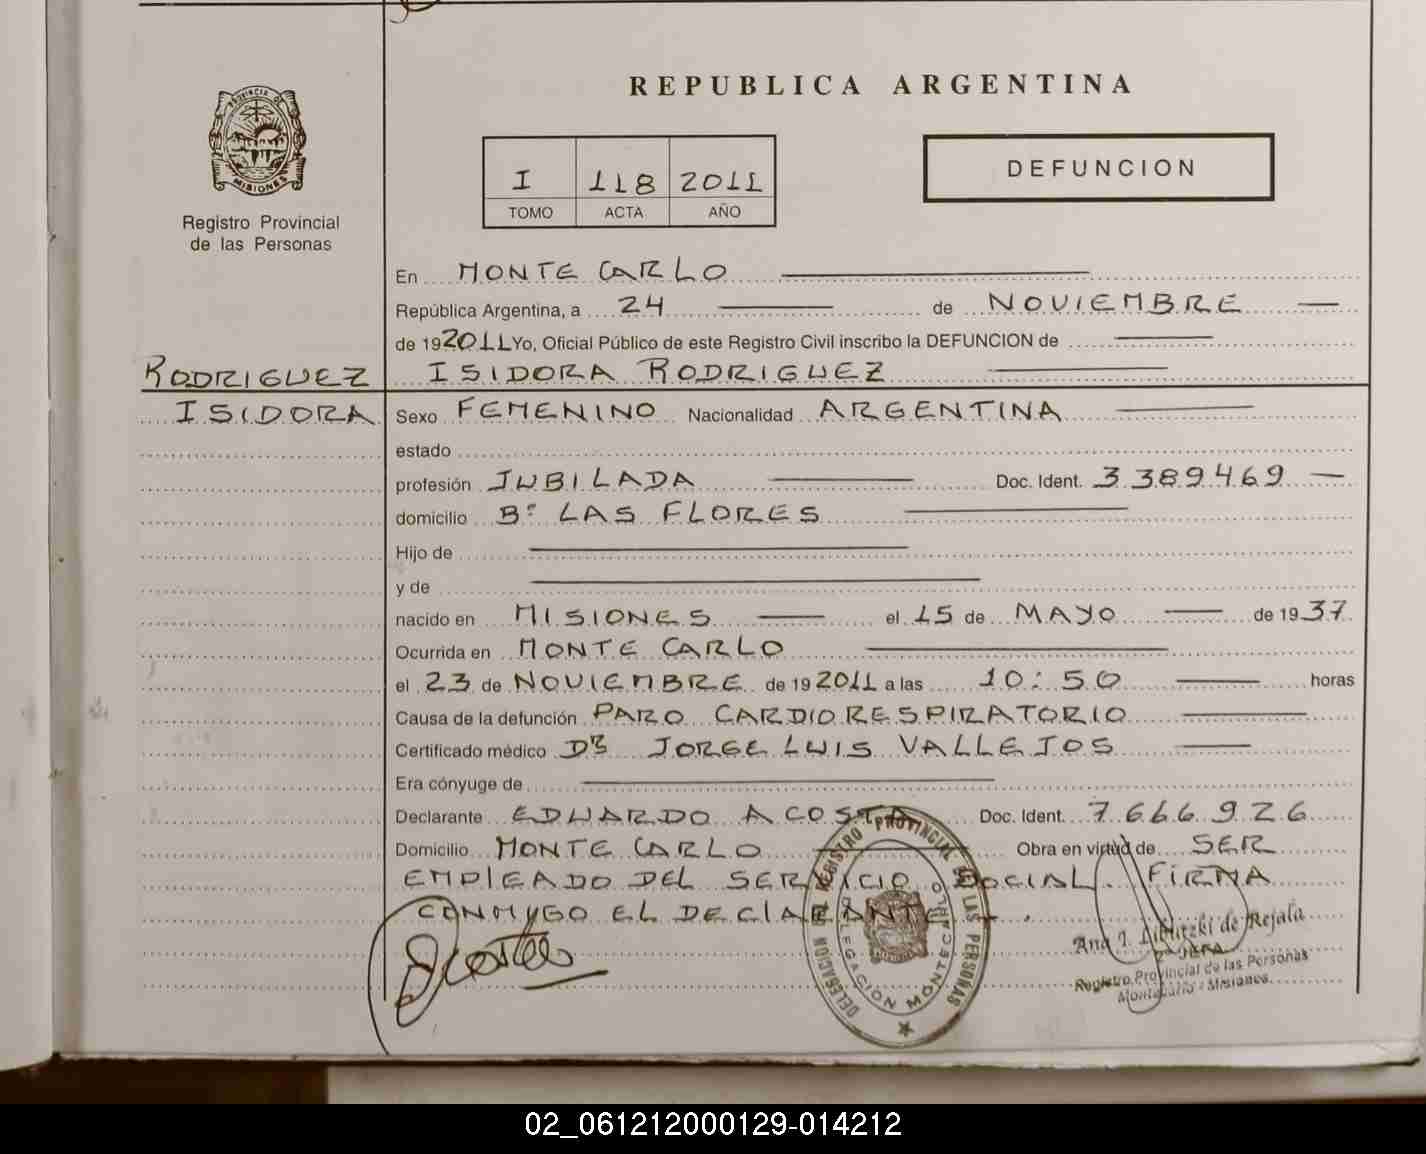 REPUBLICA ARGENTINA
PROVINCIA DE
MISIONES
Registro Provincial
de las Personas
I 118 2011
TOMO ACTA AÑO
DEFUNCION
En MONTE CARLO
República Argentina, a 24 de NOVIEMBRE
de 192011 Yo, Oficial Público de este Registro Civil inscribo la DEFUNCION de
RODRIGUEZ
ISIDORA
ISIDORA RODRIGUEZ
Sexo FEMENINO Nacionalidad ARGENTINA
estado
profesión JUBILADA Doc. Ident. 3389469
domicilio Bº LAS FLORES
Hijo de
y de
nacido en MISIONES el 15 de MAYO de 1937
Ocurrida en MONTE CARLO
el 23 de NOVIEMBRE de 192011 a las 10:50 horas
Causa de la defunción PARO CARDIORESPIRATORIO
Certificado médico DR JORGE LUIS VALLEJOS
Era cónyuge de
Declarante EDUARDO ACOSTA Doc. Ident. 7666926
Domicilio MONTE CARLO Obra en virtud de SER
EMPLEADO DEL SERVICIO SOCIAL. FIRMA
CONMYGO EL DECLARANTE.
DELEGACION DEL REGISTRO PROVINCIAL DE LAS PERSONAS
DELEGACION MONTECARLO
Ana de Rejala
JEFA
Registro Provincial de las Personas
Montecarlo - Misiones
02_061212000129-014212